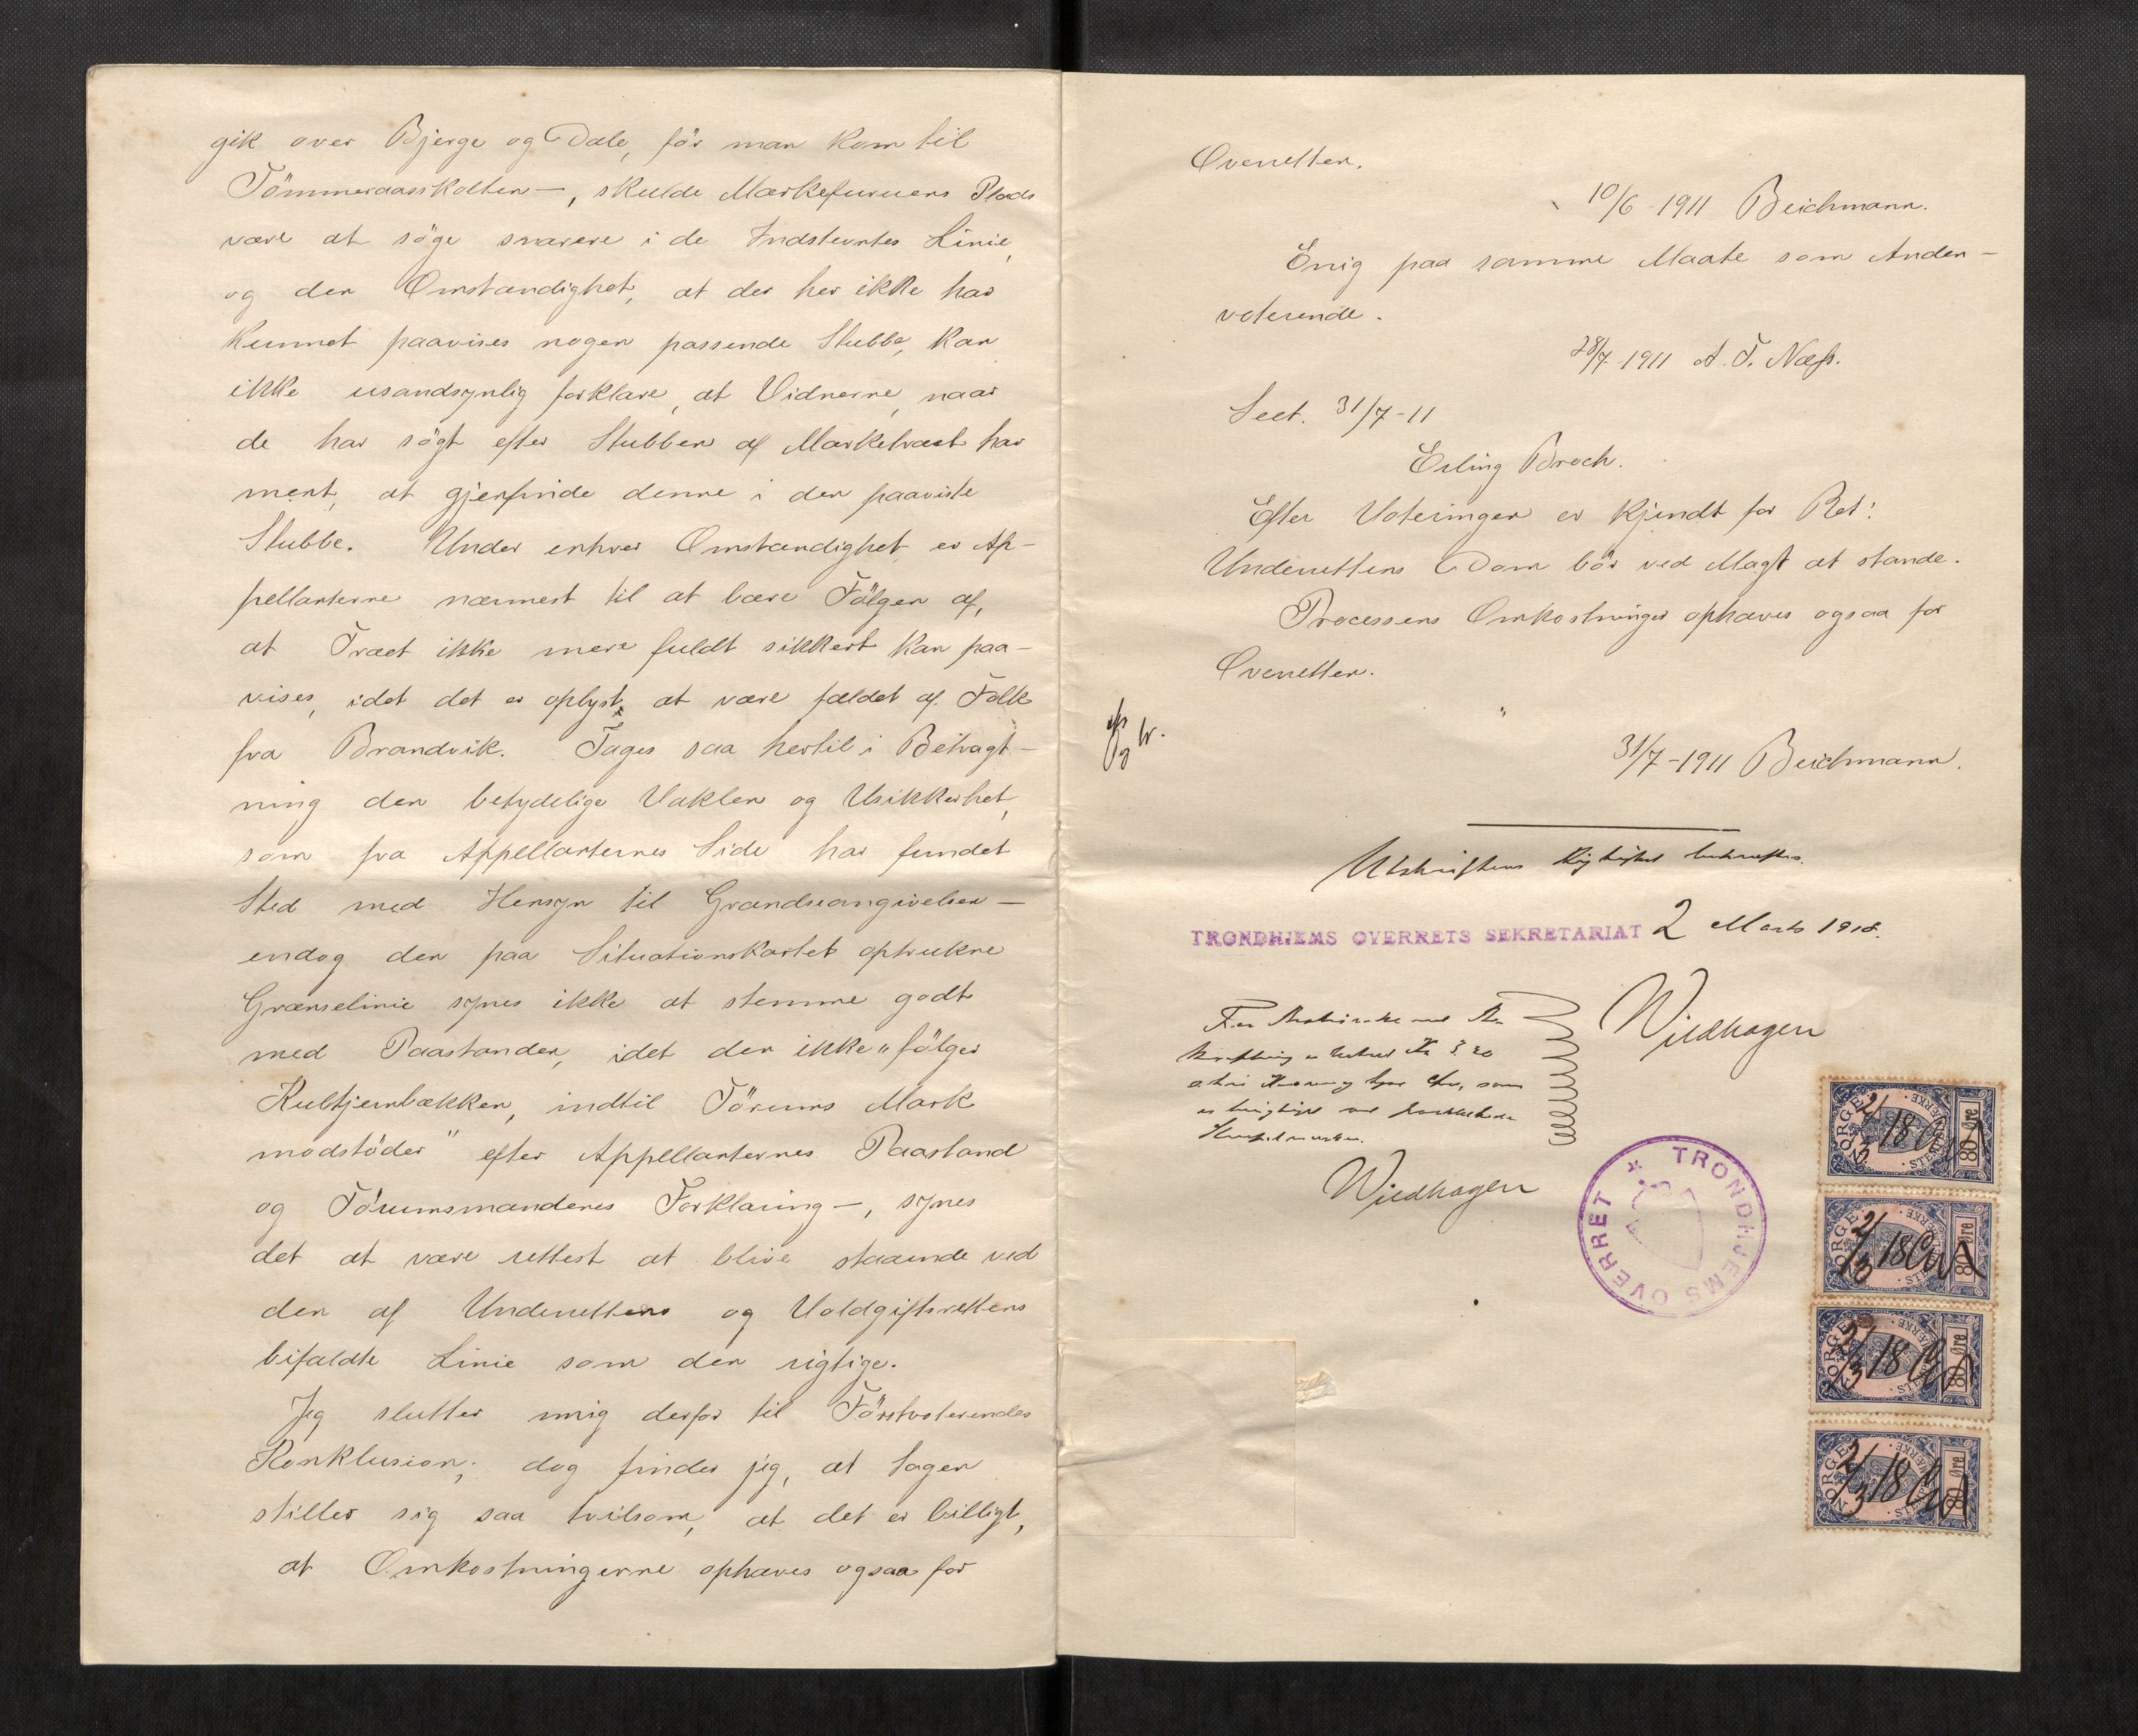 gik over Bjerge og Dale, för man kom til
Tömmeraasskolten —, skulde Mærkefuruens Plads
være at söge snarere i de Indstevntes Linie,
og den Omstændighet, at der her ikke har
kunnet paavises nogen passende Stubbe, kan
ikke usandsynlig forklare, at Vidnerne, naar
de har sögt efter Stubben af Mærketræet har
ment, at gjenfinde denne i den paaviste
Stubbe. Under enhver Omstændighet er Ap-
pellanterne nærmest til at bære Fölgen af,
at Træet ikke mere fuldt sikkert kan paa-
vises, idet det er oplyst at være fældet af Folk
fra Brandvik. Tages saa hertil i Betragt-
ning den betydelige Vaklen og Usikkerhet,
som fra Appellanternes Side har fundet
Sted med Hensyn til Grændseangivelsen —
endog den paa Situationskartet optrukne
Grænselinie synes ikke at stemme godt
med Paastanden, idet den ikke "fölger
Kultjernbækken, indtil Törums Mark
modstöder" efter Appellanternes Paastand
og Törumsmændenes Forklaring —, synes
det at være rettest at blive staaende ved
den af Underettens og Voldgiftsrettens
bifaldte Linie som den rigtige.
Jeg slutter mig derfor til Förstvoterendes
Konklusion; dog finder jeg, at Sagen
stiller sig saa tvilsom, at det er billigt,
at Omkostningerne ophæves ogsaa for
Overetten.
10/6 1911 Beichmann.
Enig paa samme Maate som Anden-
voterende.
28/7 1911 A. T. Næss.
Seet. 31/7-11
Erling Broch.
Efter Voteringen er kjendt for Ret:
Underettens Dom bör ved Magt at stande.
Processens Omkostninger ophæves ogsaa for
Overetten.
31/7-1911 Beichmann.
Utskriftens Rigtighet bekræftes.
TRONDHJEMS OVERRETS SEKRETARIAT 2 Marts 1918.
Wiedhagen
Wiedhagen
TRONDHJEMS OVERRET
NORGE STEMPELMÆRKE 80 Øre
2/3 18 CW
NORGE STEMPELMÆRKE 80 Øre
2/3 18 CW
NORGE STEMPELMÆRKE 80 Øre
2/3 18 CW
NORGE STEMPELMÆRKE 80 Øre
2/3 18 CW